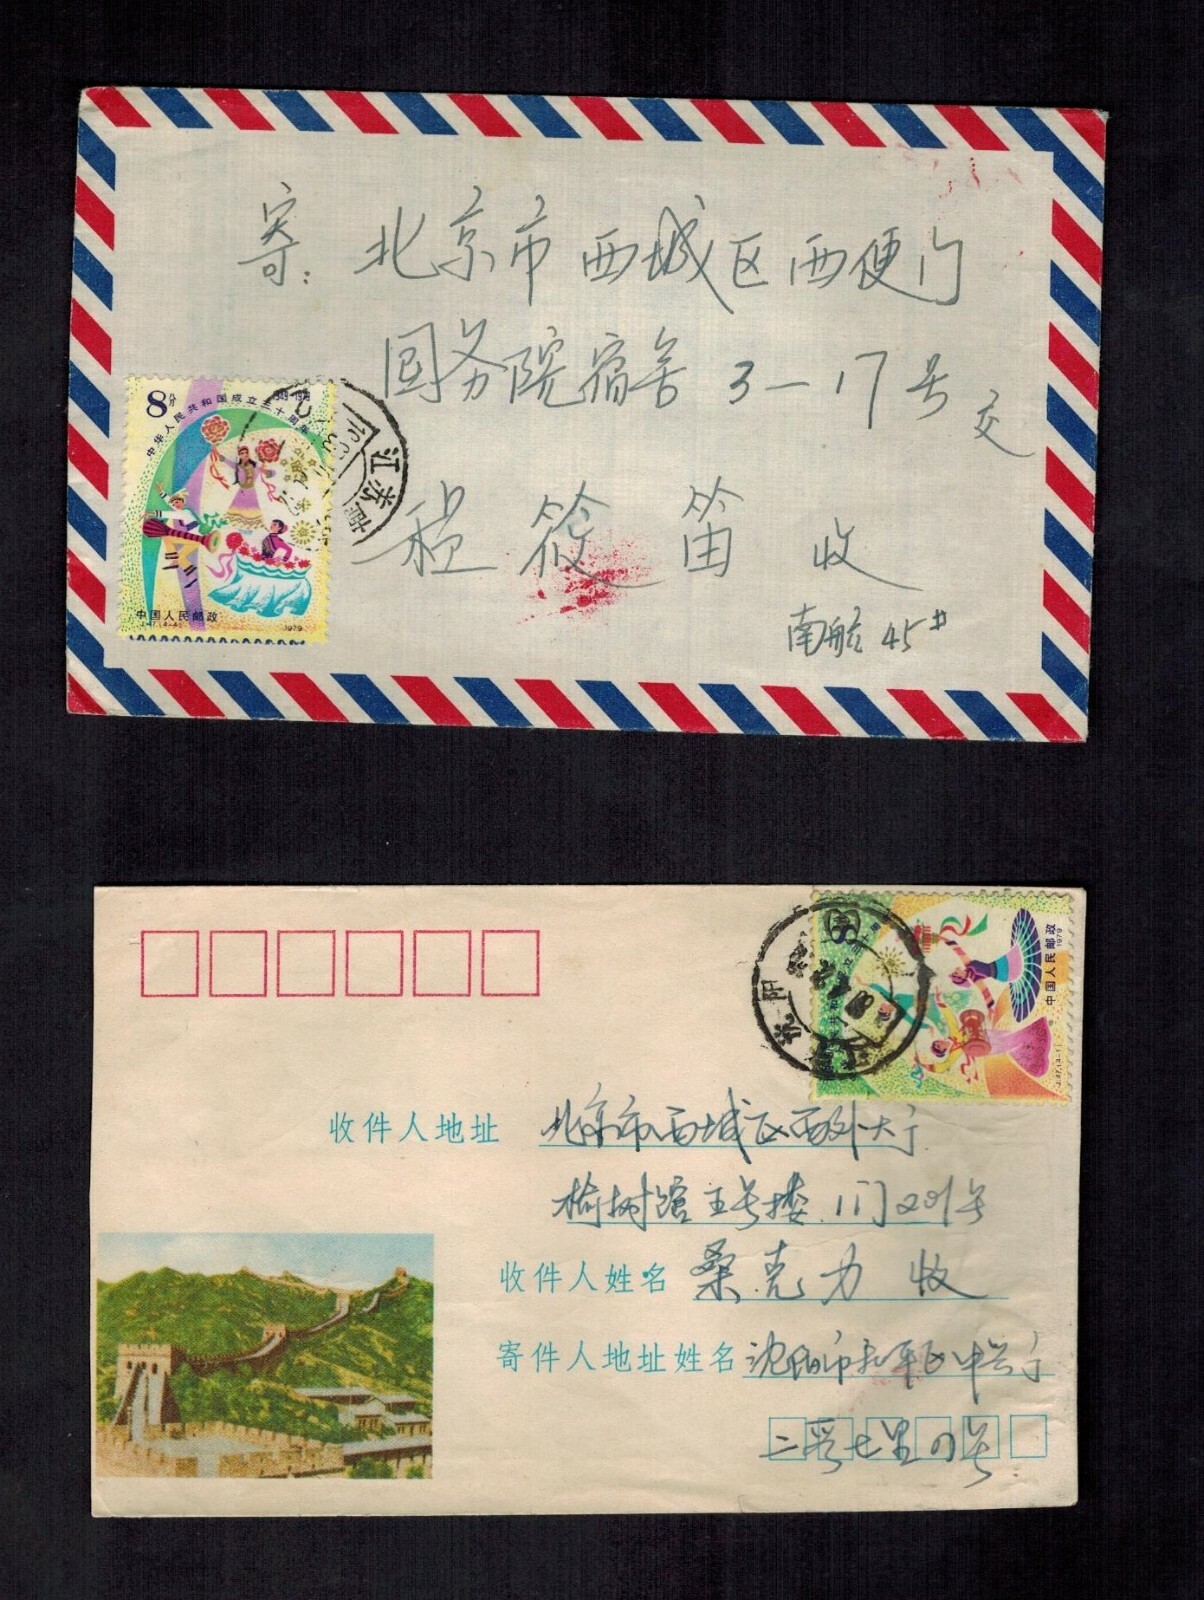 寄：北京市西城区西便门
国务院宿舍3—17号
交
程筱笛 收
南船45#
8分
1949-1979
中华人民共和国成立三十周年
中国人民邮政
J.47.(4-4)
1979
江苏
8
中国人民邮政
1979
J.47.(4-1)
沈阳
收件人地址 北京市西城区西外大宁
榆树馆五号楼1门201号
收件人姓名 桑克力 收
寄件人地址姓名 沈阳市和平区中兴宁
二段七里四号